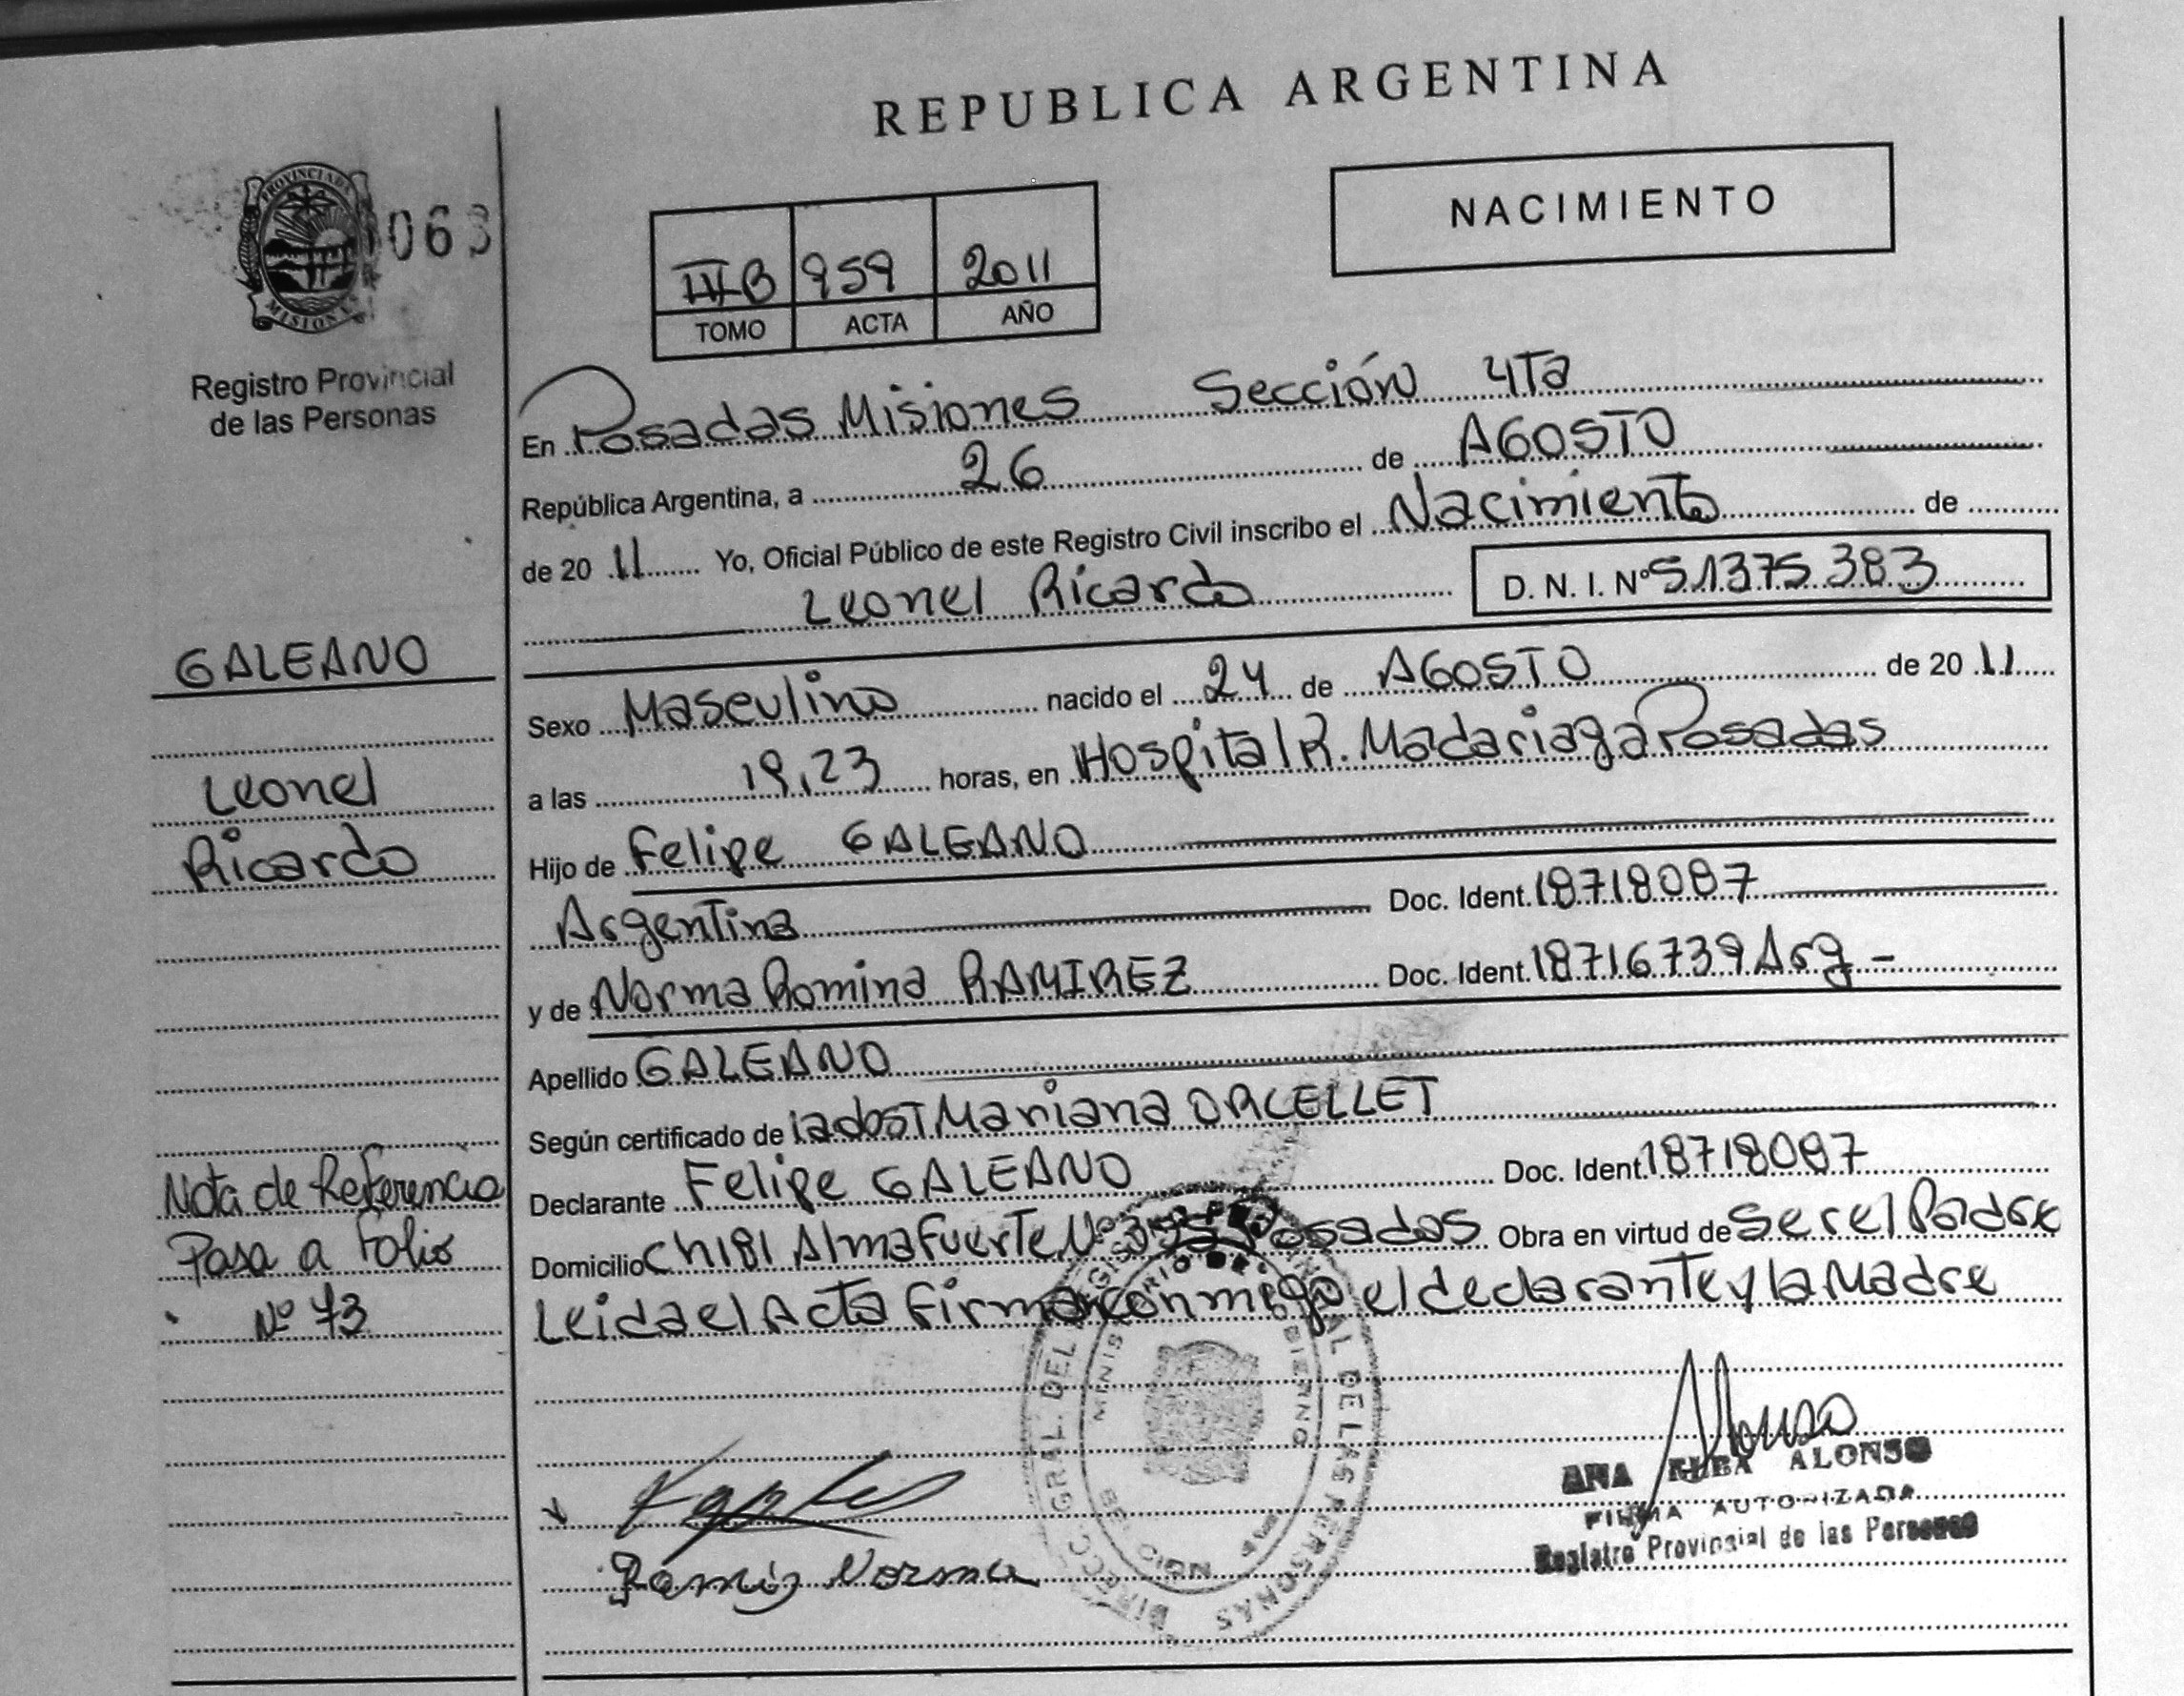 REPUBLICA ARGENTINA
NACIMIENTO
PROVINCIA DE MISIONES
063
Registro Provincial
de las Personas
III B 959 2011
TOMO ACTA AÑO
En Posadas Misiones Sección 4Ta
República Argentina, a 26 de AGOSTO
de 2011 Yo, Oficial Público de este Registro Civil inscribo el Nacimiento de
Leonel Ricardo D. N. I. Nº 51375383
GALEANO
Leonel
Ricardo
Sexo Masculino nacido el 24 de AGOSTO de 2011
a las 19,23 horas, en Hospital R. Madariaga Posadas
Hijo de Felipe GALEANO
Argentina Doc. Ident. 18718087
y de Norma Romina RAMIREZ Doc. Ident. 18716739 Arg -
Apellido GALEANO
Según certificado de Mariana ORCELLET
Declarante Felipe GALEANO Doc. Ident. 18718087
Domicilio Ch181 AlmaFuerte Nº Posadas Obra en virtud de Ser el Padre
Leida el Acta Firman conmigo el declarante y la Madre
Nota de Referencia
Pasa a Folio
Nº 73
Norma
Alonso
ANA ELBA ALONSO
FIRMA AUTORIZADA
Registro Provincial de las Personas